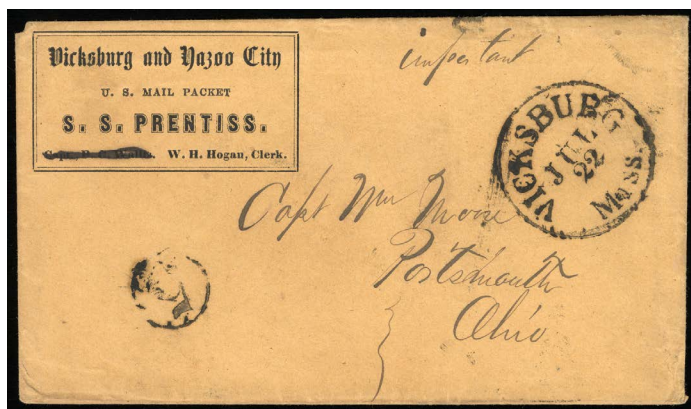 Vicksburg and Yazoo City
U. S. MAIL PACKET
S. S. PRENTISS.
W. H. Hogan, Clerk.
important
VICKSBURG
JUL
22
Miss.
Capt Wm Moore
Portsmouth
Ohio